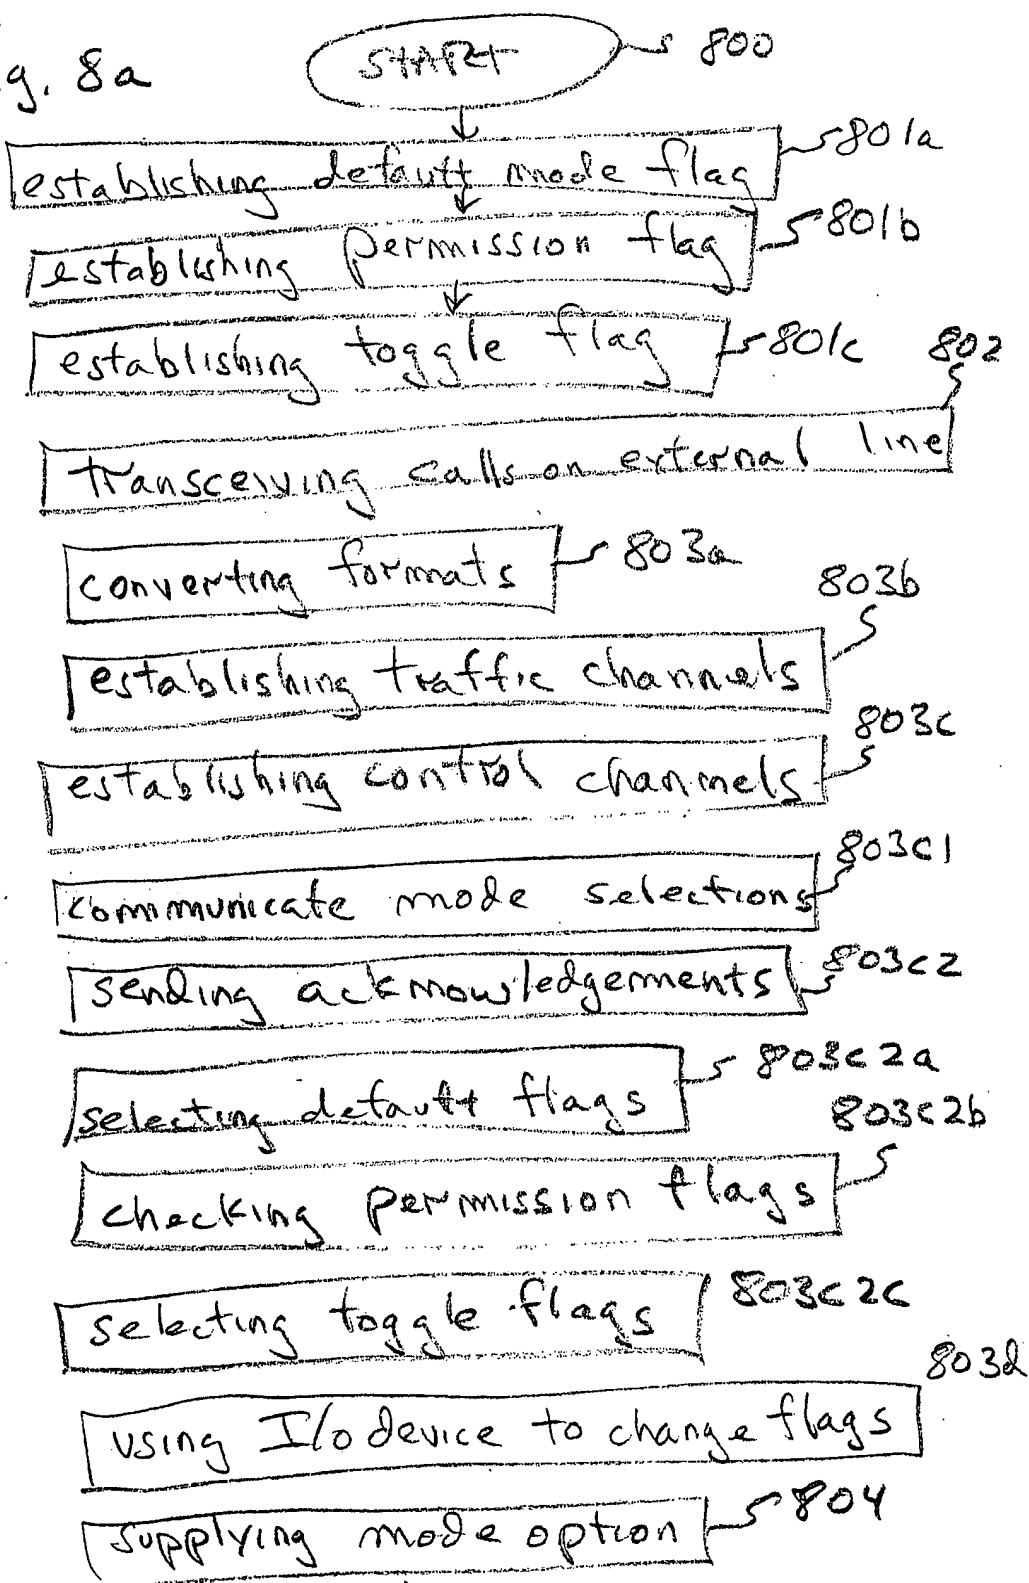 g. 8a
START 800
establishing default mode flag 801a
establishing permission flag 801b
establishing toggle flag 801c
802
transceiving calls on external line
converting formats 803a
803b
establishing traffic channels
803c
establishing control channels
803c1
communicate mode selections
sending acknowledgements 803c2
selecting default flags 803c2a
803c2b
checking permission flags
selecting toggle flags 803c2c
803d
using I/O device to change flags
supplying mode option 804